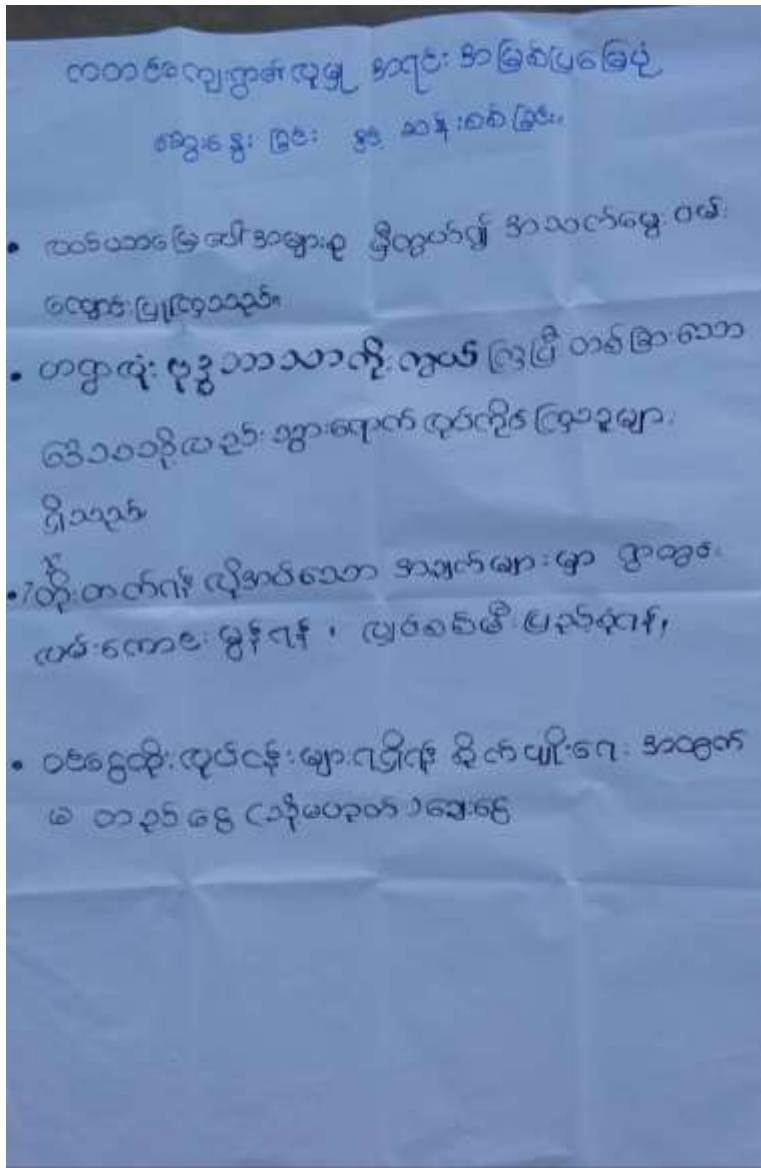 ကတင်ကျေးရွာ၏ လူမှု အရင်း အမြစ်ပြမြေပုံ
ဆွေးနွေး ခြင်း နှင့် ဆန်းစစ်ခြင်း
• လယ်ယာမြေပေါ် အများစု မှီတွယ်၍ အသက်မွေး ဝမ်း
ကျောင်းပြုကြသည်။
• တရွာလုံး ဗုဒ္ဓဘာသာကို ကွယ် ကြပြီ တစ်ခြားသော
ဒေသသို့လည်း သွားရောက် လုပ်ကိုင်ကြသူများ
ရှိသည်။
• ရွာတိုးတက်ရန် လိုအပ်သော အချက်များမှာ ရွာတွင်း
လမ်းကောင်း မွန်ရန်၊ လျှပ်စစ်မီး ပြည့်စုံရန်၊
• ဝင်ငွေတိုး လုပ်ငန်းများရရှိရန် စိုက်ပျိုးရေး အတွက်
မ တည် ငွေ (သို့မဟုတ်) ချေးငွေ